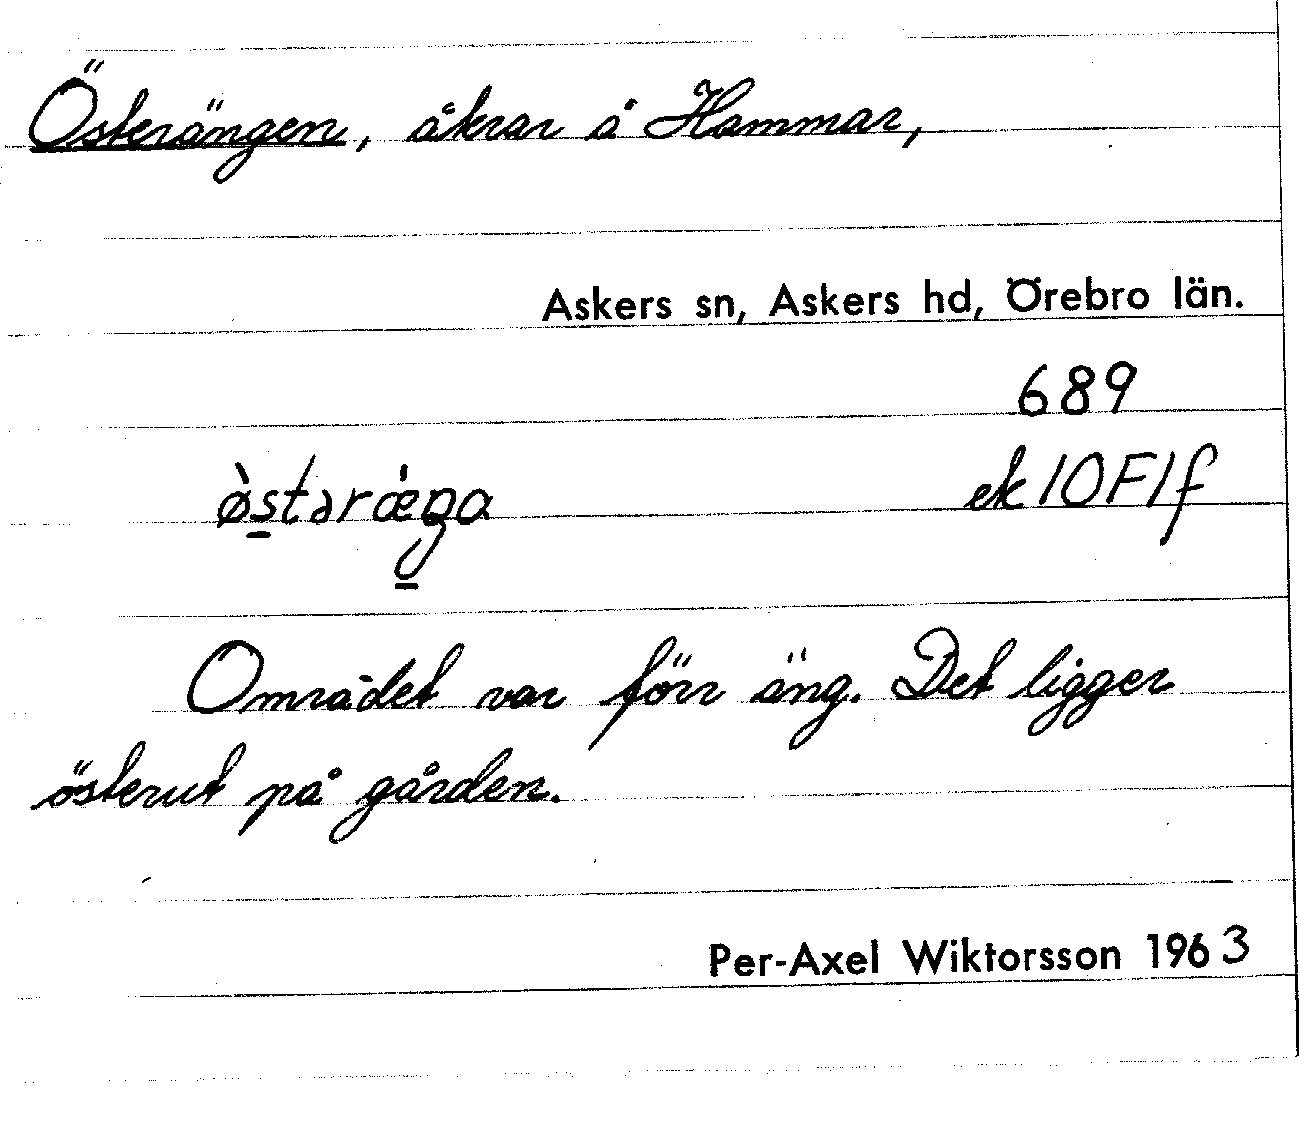 Österängen, åkrar å Hammar,
Askers sn, Askers hd, Örebro län.
689
ø̀stəræ̀ŋa ek 10F1f
Området var förr äng. Det ligger
österut på gården.
Per-Axel Wiktorsson 1963